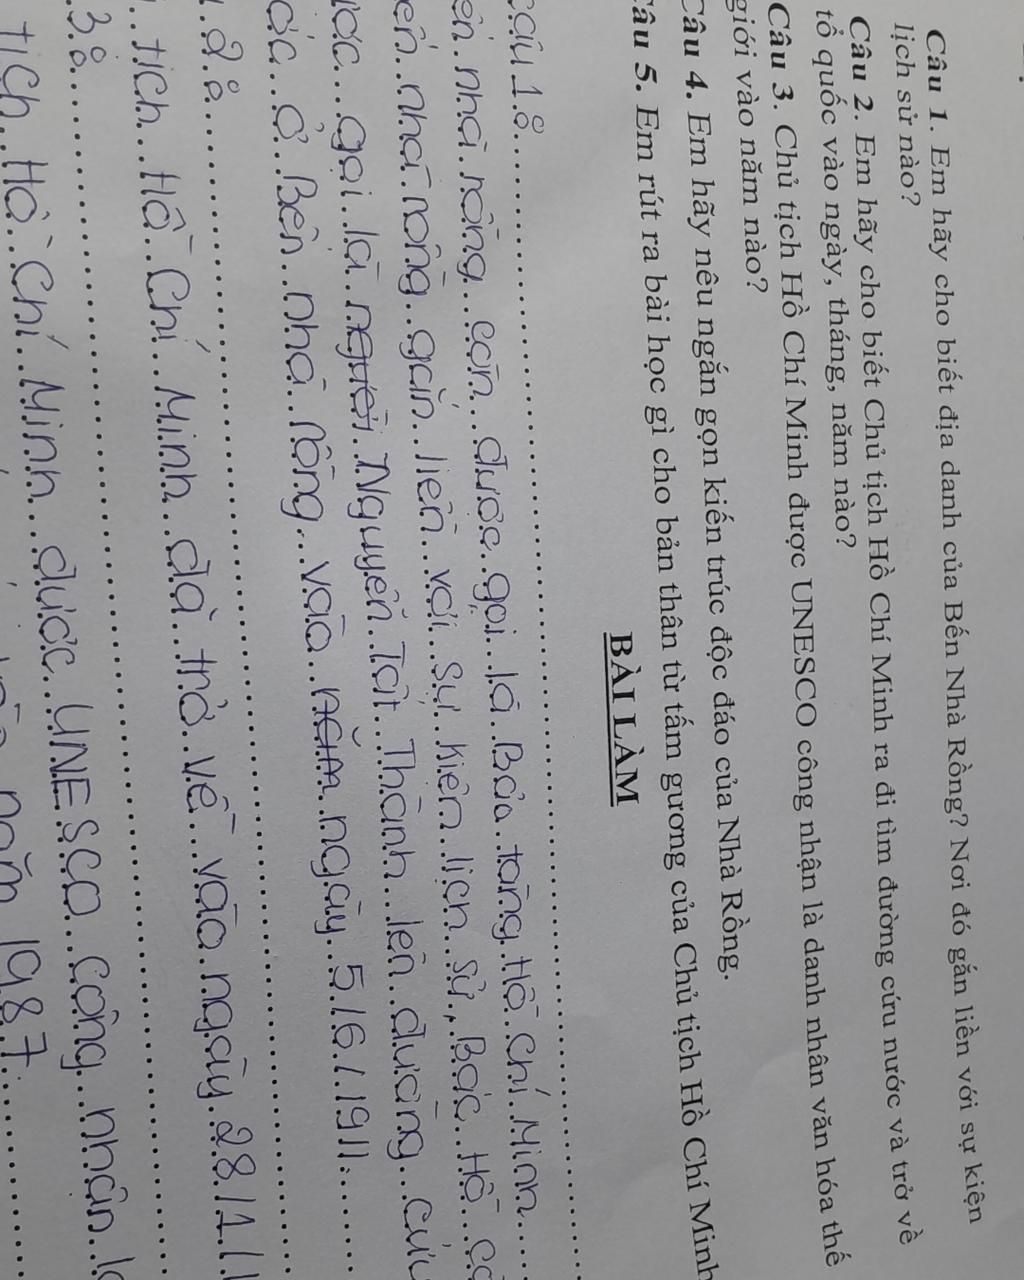 Câu 1. Em hãy cho biết địa danh của Bến Nhà Rồng? Nơi đó gắn liền với sự kiện
lịch sử nào?
Câu 2. Em hãy cho biết Chủ tịch Hồ Chí Minh ra đi tìm đường cứu nước và trở về
tổ quốc vào ngày, tháng, năm nào?
Câu 3. Chủ tịch Hồ Chí Minh được UNESCO công nhận là danh nhân văn hóa thế
giới vào năm nào?
Câu 4. Em hãy nêu ngắn gọn kiến trúc độc đáo của Nhà Rồng.
Câu 5. Em rút ra bài học gì cho bản thân từ tấm gương của Chủ tịch Hồ Chí Minh
BÀI LÀM
câu 1:
ến nhà rồng còn được gọi là Bảo tàng Hồ Chí Minh
ến nhà rồng gắn liền với sự kiện lịch sử, Bác Hồ
gọi là người Nguyễn Tất Thành lên đường cứu
ở Bến nhà rồng vào năm ngày 5/6/1911.
2:
tịch Hồ Chí Minh đã trở về vào ngày 28/1/
3:
tịch Hồ Chí Minh được UNESCO công nhận
năm 1987